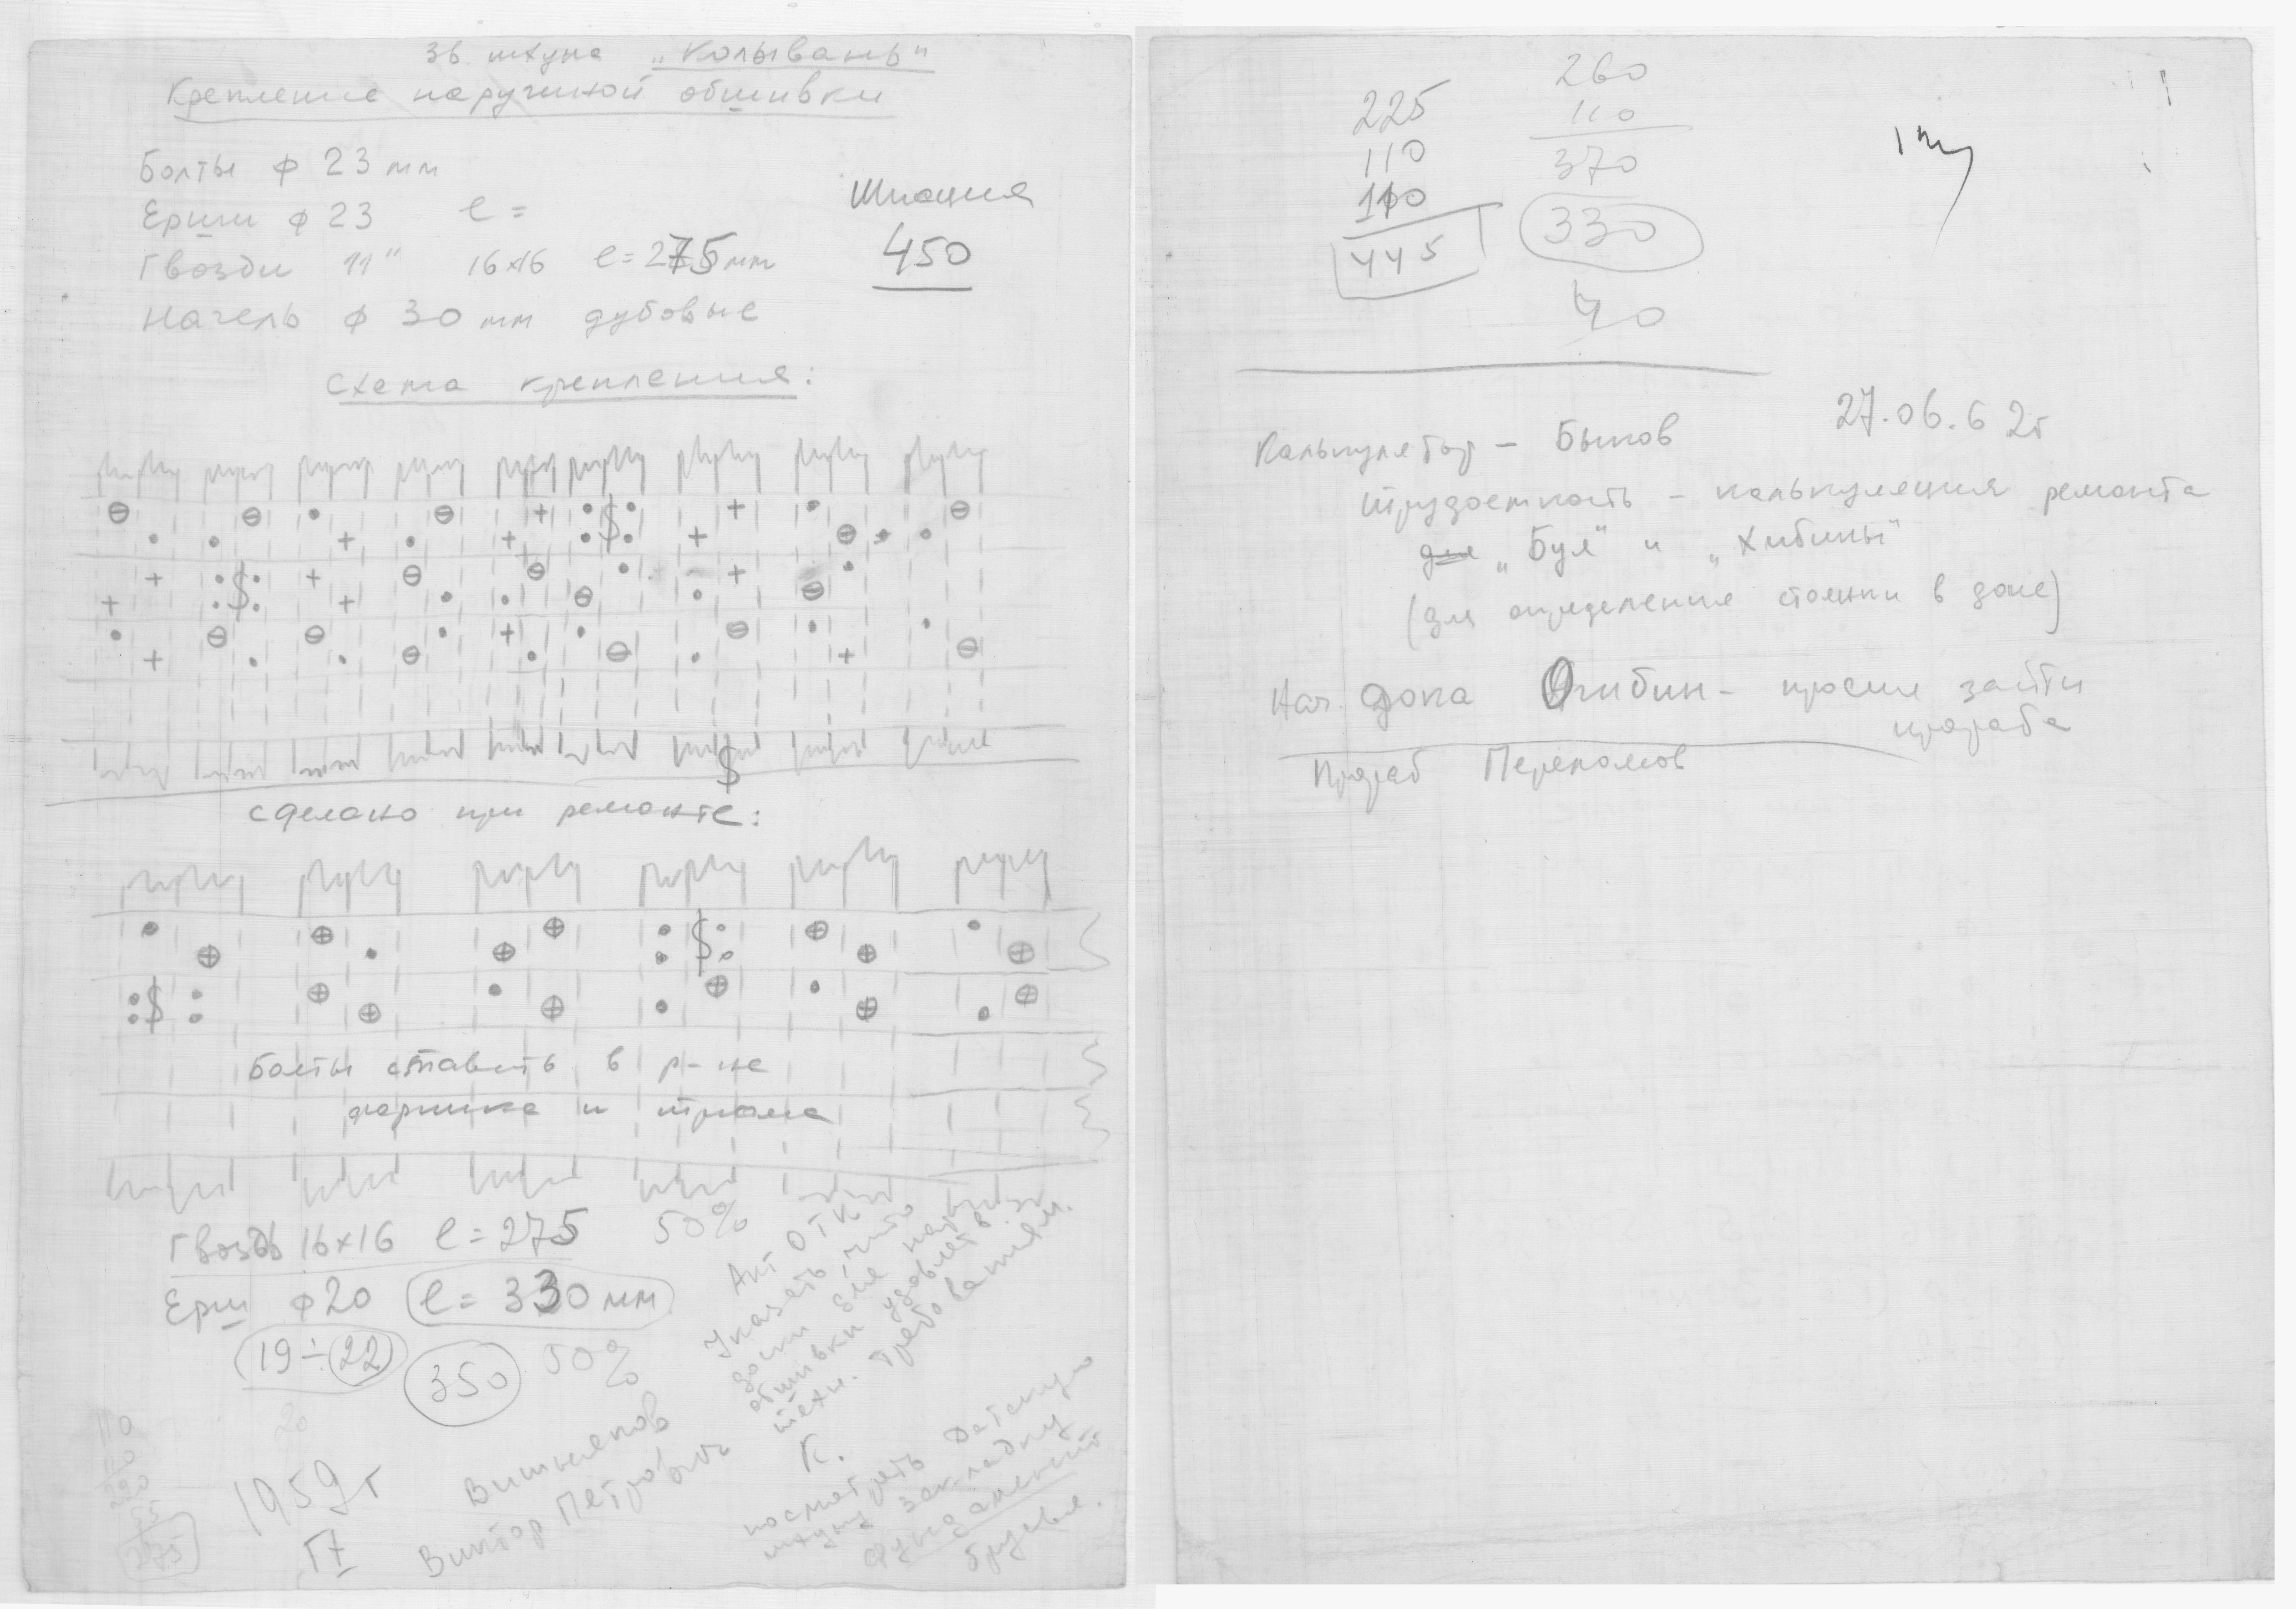 зв. шхуна „Колывань"
Крепление наружной обшивки
Болты ф 23 мм
Ерши ф 23 l =
Гвозди 11" 16×16 l = 275 мм
Нагель ф 30 мм дубовые
Шпация
450
Схема крепления:
сделано при ремонте:
Болты ставить в р-не
форпика и трюма
Гвоздь 16×16 l = 275 50%
Ерш ф 20 l = 330 мм
19÷22 350 50%
20
110
110
220
55
275
1959 г
IV
Вишняков
Виктор Петрович
Акт ОТК
Указать, что
доски для наруж
обшивки удовлетв.
техн. требованиям.
К.
посмотреть Датскую
шхуну закладку
фундамент
брусья.
225
110
110
445
260
110
370
330
40
27.06.62г
Калькулятор – Быков
трудоемкость – калькуляция ремонта
для „Буя" и „Хибины"
(для определения стоянки в доке)
Нач. дока Огибин – просил зайти
прораба
Прораб Переломов